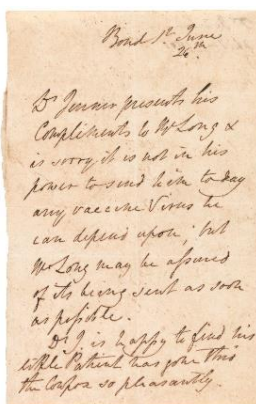 Bond St. June
26th.
Dr Jenner presents his
Compliments to Mr Long &
is sorry it is not in his
power to send him to day
any vaccine Virus he
can depend upon; but
Mr Long may be assured
of its being sent as soon
as possible.
Dr J. is happy to find his
little Patient has gone thro
the Cowpox so pleasantly.